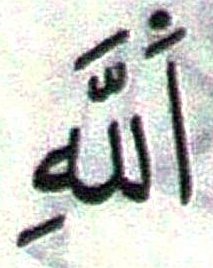 اَ۬للَّهِ